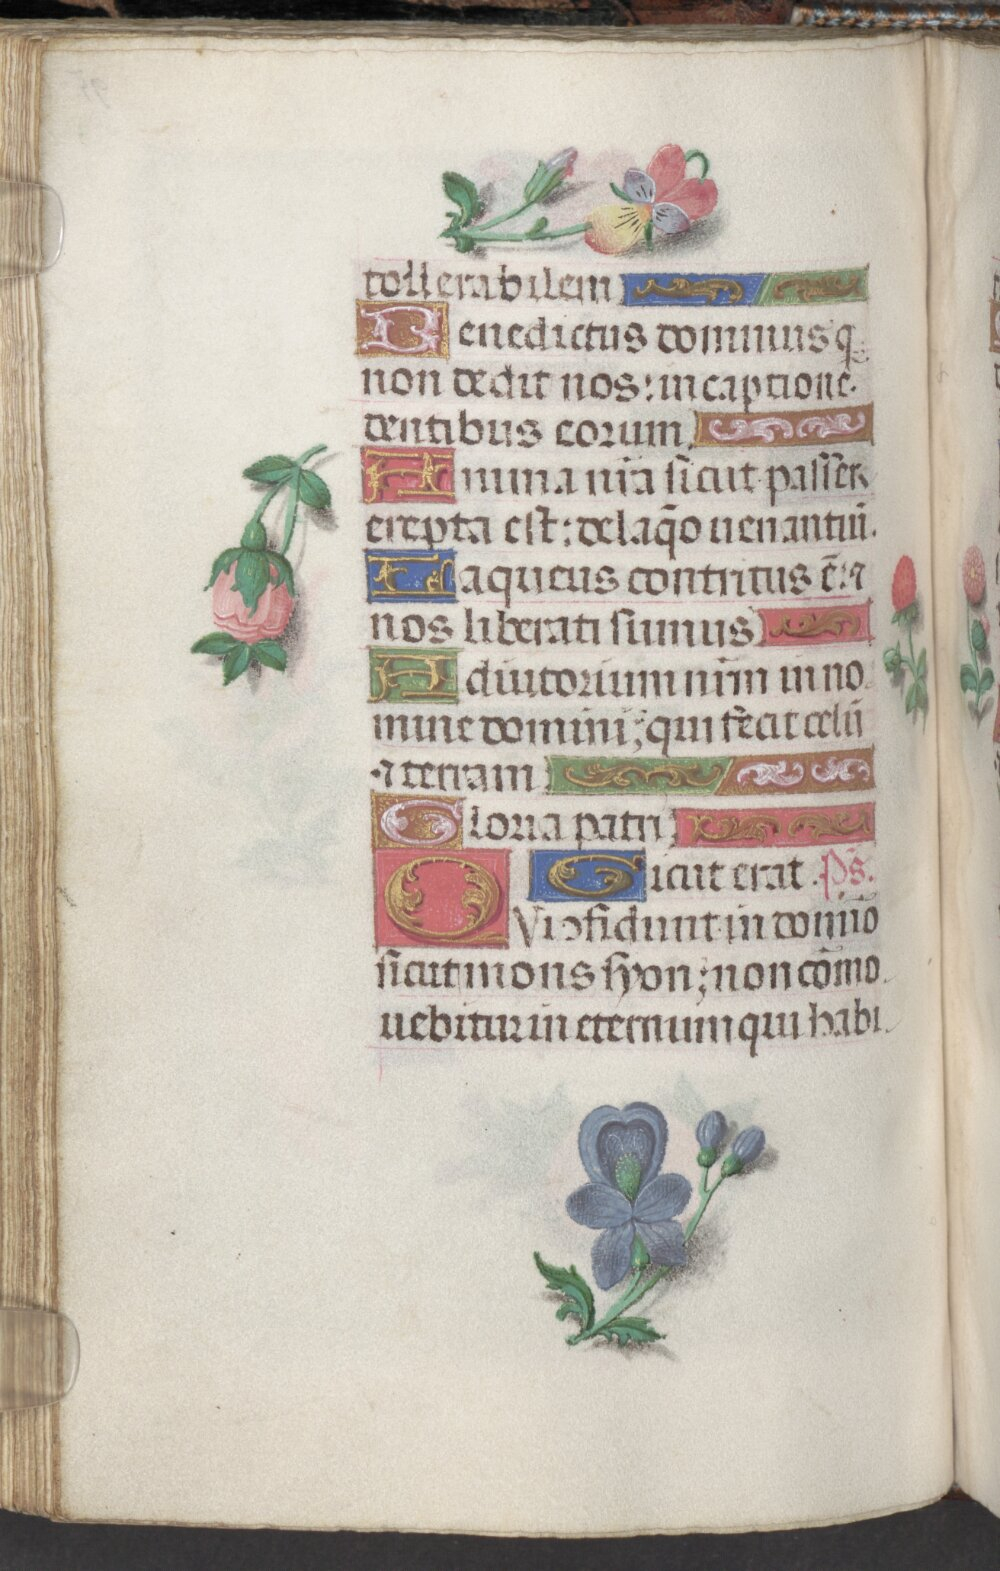 tollerabilem
Benedictus dominus q
non dedit nos: in captione
dentibus eorum
Anima nr̄a sicut passer
erepta est: de laq̄o uenantiū.
Laqueus contritus ē: ⁊
nos liberati sumus
Adiutorium nr̄m in no
mine domini; qui fecit celū
⁊ terram
Gloria patri
Sicut erat. Ps̄.
QVi ꝯfidunt in domino
sicut mons syon; non cōmo
uebitur in eternum qui habi